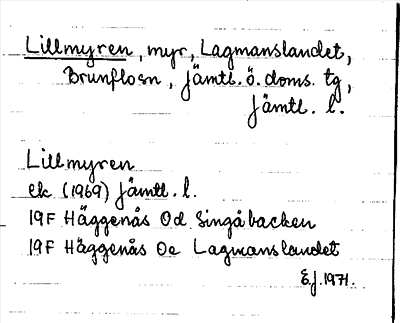 Lillmyren, myr, Lagmanslandet,
Brunflo sn, Jämtl. ö. doms. tg,
Jämtl. l.
Lillmyren
ek (1969) Jämtl. l.
19F Häggenås 0d Singåbacken
19F Häggenås 0e Lagmanslandet
E.J. 1971.